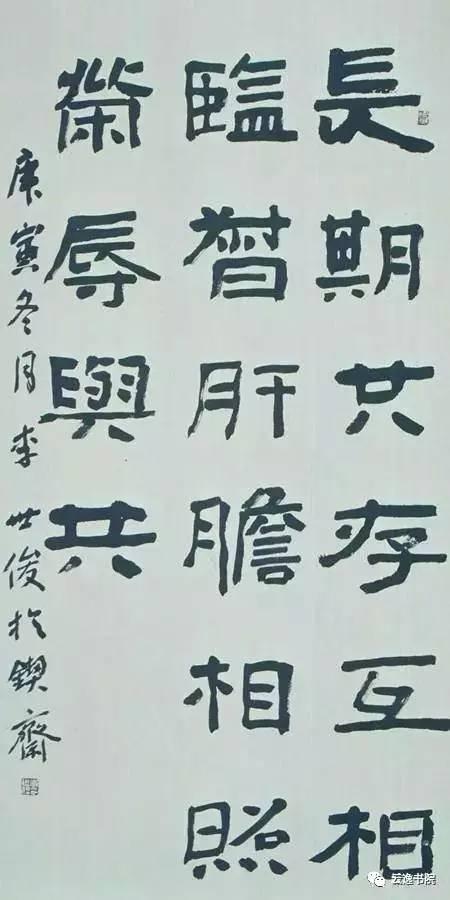 長期共存互相
監督肝膽相照
榮辱與共
庚寅冬月李世俊於鍥齋
云逸书院